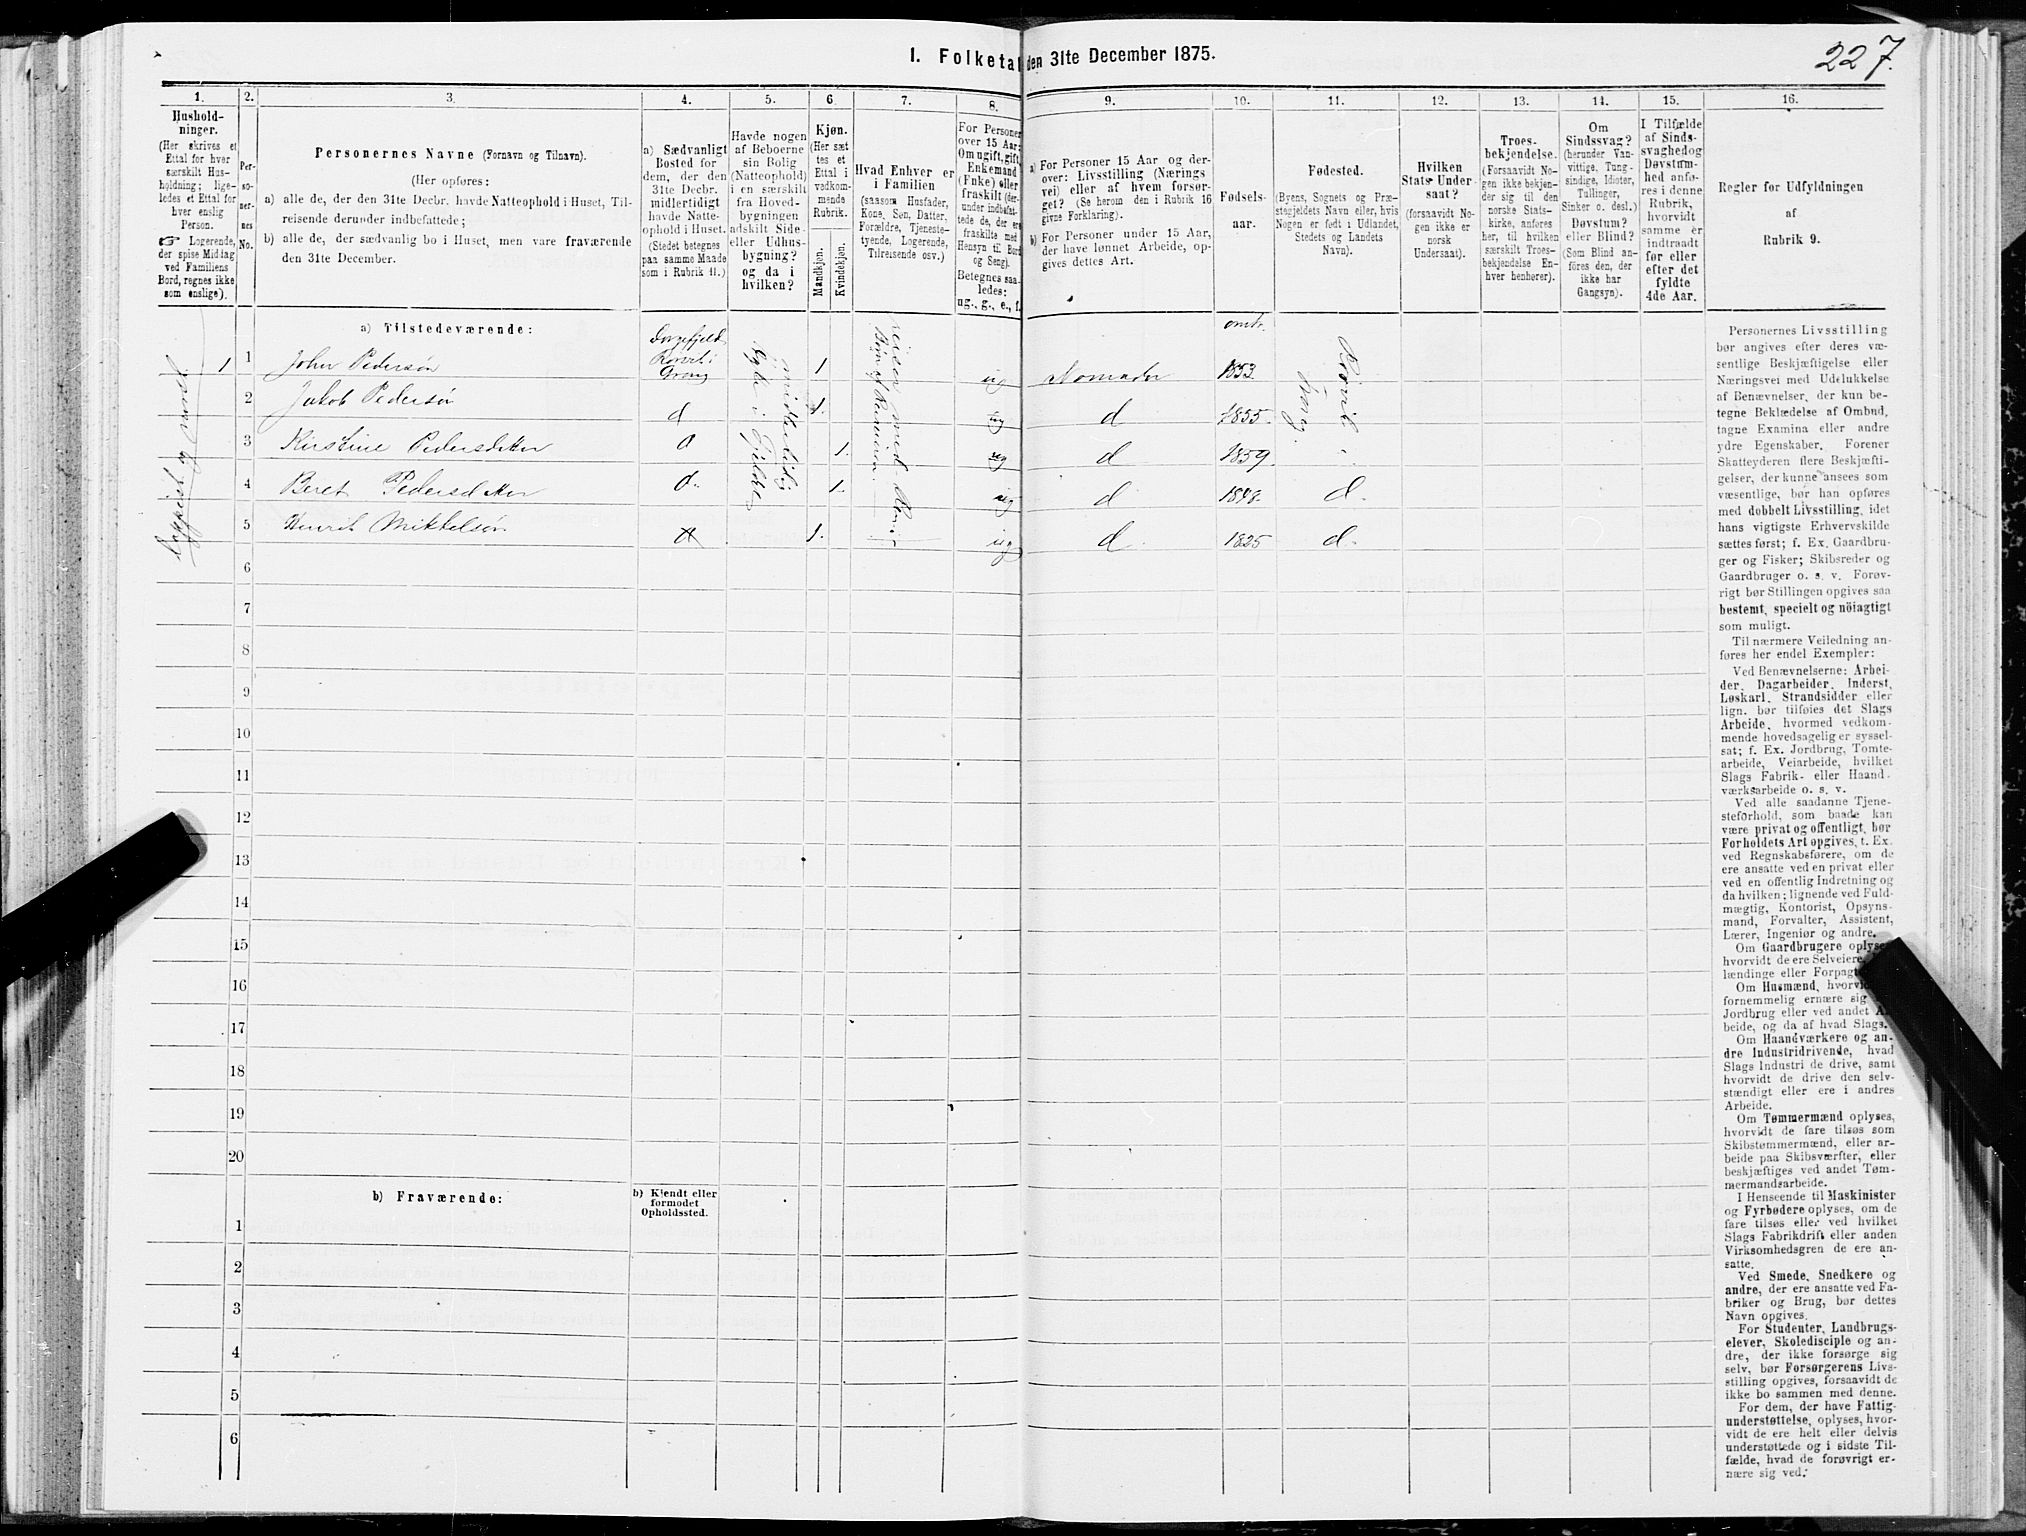 I. Folketal den 31te December 1875.
227.
1.
Hushold-
ninger.
(Her skrives et
Ettal for hver
særskilt Hus-
holdning; lige-
ledes et Ettal for
hver enslig
Person.
☞ Logerende,
der spise Middag
ved Familiens
Bord, regnes ikke
som enslige).
2.
Per-
so-
ner-
nes
No.
3.
Personernes Navne (Fornavn og Tilnavn).
(Her opføres:
a) alle de, der den 31te Decbr. havde Natteophold i Huset, Til-
reisende derunder indbefattede;
b) alle de, der sædvanlig bo i Huset, men vare fraværende
den 31te December.
4.
a) Sædvanligt
Bosted for
dem, der den
31te Decbr.
midlertidigt
havde Natte-
ophold i Huset.
(Stedet betegnes
paa samme Maade
som i Rubrik 11.)
5.
Havde nogen
af Beboerne
sin Bolig
(Natteophold)
i en særskilt
fra Hoved-
bygningen
adskilt Side-
eller Udhus-
bygning?
og da i
hvilken?
6.
Kjøn.
(Her sæt
tes et
Ettal i
vedkom-
mende
Rubrik.
Mandkjøn.
Kvindekjøn.
7.
Hvad Enhver er
i Familien
(saasom Husfader,
Kone, Søn, Datter,
Forældre, Tjeneste-
tyende, Logerende,
Tilreisende osv.)
8.
For Personer
over 15 Aar:
Om ugift, gift,
Enkemand
(Enke) eller
fraskilt (der-
under indbefat-
tede de, der ere
fraskilte med
Hensyn til Bord
og Seng).
Betegnes saa-
ledes:
ug., g., e., f.
9.
a) For Personer 15 Aar og der-
over: Livsstilling (Nærings
vei) eller af hvem forsør-
get? (Se herom den i Rubrik 16
givne Forklaring).
b) For Personer under 15 Aar,
der have lønnet Arbeide, op-
gives dettes Art.
10.
Fødsels-
aar.
11.
Fødested.
(Byens, Sognets og Præ-
stegjeldets Navn eller, hvis
Nogen er født i Udlandet,
Stedets og Landets
Navn).
12.
Hvilken
Stats Under-
saat?
(forsaavidt No-
gen ikke er
norsk
Undersaat).
13.
Troes-
bekjendelse.
(Forsaavidt No-
gen ikke bekjen-
der sig til den
norske Stats-
kirke, anføres
her, til hvilken
særskilt Troes-
bekjendelse En-
hver henhører).
14.
Om
Sindssvag?
(herunder Van-
vittige, Tung-
sindige, Idioter,
Tullinger,
Sinker o. desl.)
Døvstum?
eller Blind?
(Som Blind an-
føres den, der
ikke har
Gangsyn).
15.
I Tilfælde
af Sinds-
svaghed og
Døvstum-
hed anfø-
res i denne
Rubrik,
hvorvidt
samme er
indtraadt
før eller
efter det
fyldte
4de Aar.
16.
Regler for Udfyldningen
af
Rubrik 9.
a) Tilstedeværende:
omtr.
1 1 John Pedersøn Grong 1 ug Nomader 1853.
2 Jakob Pedersøn d 1. ug d 1855.
3 Kirstine Pedersdatter d 1. ug d 1859.
4 Beret Pedersdatter d. 1. ug d 1848. d.
5 Henrik Mikkelsøn d 1. ug d. 1825 d.
6
7
8
9
10
11
12
13
14
15
16
17
18
19
20
b) Fraværende:
b) Kjendt eller
formodet
Opholdssted.
1
2
3
4
5
6
Personernes Livsstilling
bør angives efter deres væ-
sentlige Beskjæftigelse eller
Næringsvei med Udelukkelse
af Benævnelser, der kun be-
tegne Beklædelse af Ombud,
tagne Examina eller andre
ydre Egenskaber. Forener
Skatteyderen flere Beskjæfti-
gelser, der kunne ansees som
væsentlige, bør han opføres
med dobbelt Livsstilling, idet
hans vigtigste Erhvervskilde
sættes først; f. Ex. Gaardbru-
ger og Fisker; Skibsreder og
Gaardbruger o. s. v. Forøv-
rigt bør Stillingen opgives saa
bestemt, specielt og nöiagtigt
som muligt.
Til nærmere Veiledning an-
føres her endel Exempler:
Ved Benævnelserne: Arbei-
der, Dagarbeider, Inderst,
Løskarl, Strandsidder eller
lign. bør tilføies det Slags
Arbeide, hvormed vedkom-
mende hovedsagelig er syssel-
sat; f. Ex. Jordbrug, Tomte-
arbeide, Veiarbeide, hvilket
Slags Fabrik- eller Haand-
værksarbeide o. s. v.
Ved alle saadanne Tjene-
steforhold, som baade kan
være privat og offentligt, bør
Forholdets Art opgives, t. Ex.
ved Regnskabsførere, om de
ere ansatte ved en privat eller
ved en offentlig Indretning og
da hvilken; lignende ved Fuld-
mægtig, Kontorist, Opsyns-
mand, Forvalter, Assistent,
Lærer, Ingeniør og andre.
Om Gaardbrugere oplyses
hvorvidt de ere Selveiere,
lændinge eller
Om Husmænd,
fornemmelig ernære sig
Jordbrug eller ved andet
beide, og da af hvad Slags.
Om Haandværkere og an-
dre Industridrivende, hvad
Slags Industri de drive, samt
hvorvidt de drive den selv-
stændigt eller ere i andres
Arbeide.
Om Tømmermænd oplyses,
hvorvidt de fare tilsøs som
Skibstømmermænd, eller ar-
beide paa Skibsværfter, eller
beskjæftiges ved andet Tøm-
mermandsarbeide.
I Henseende til Maskinister
og Fyrbødere oplyses, om de
fare tilsøs eller ved hvilket
Slags Fabrikdrift eller anden
Virksomhedsgren de ere an-
satte.
Ved Smede, Snedkere og
andre, der ere ansatte ved Fa-
briker og Brug, bør dettes
Navn opgives.
For Studenter, Landbrugs-
elever, Skoledisciple og an-
dre, der ikke forsørge sig
selv, bør Forsørgerens Livs-
stilling opgives, forsaavidt de
ikke bo sammen med denne.
For dem, der have Fattig-
understøttelse, oplyses, hvor-
vidt de ere helt eller delvis
understøttede og i sidste Til-
fælde, hvad de forøvrigt er-
nære sig ved.